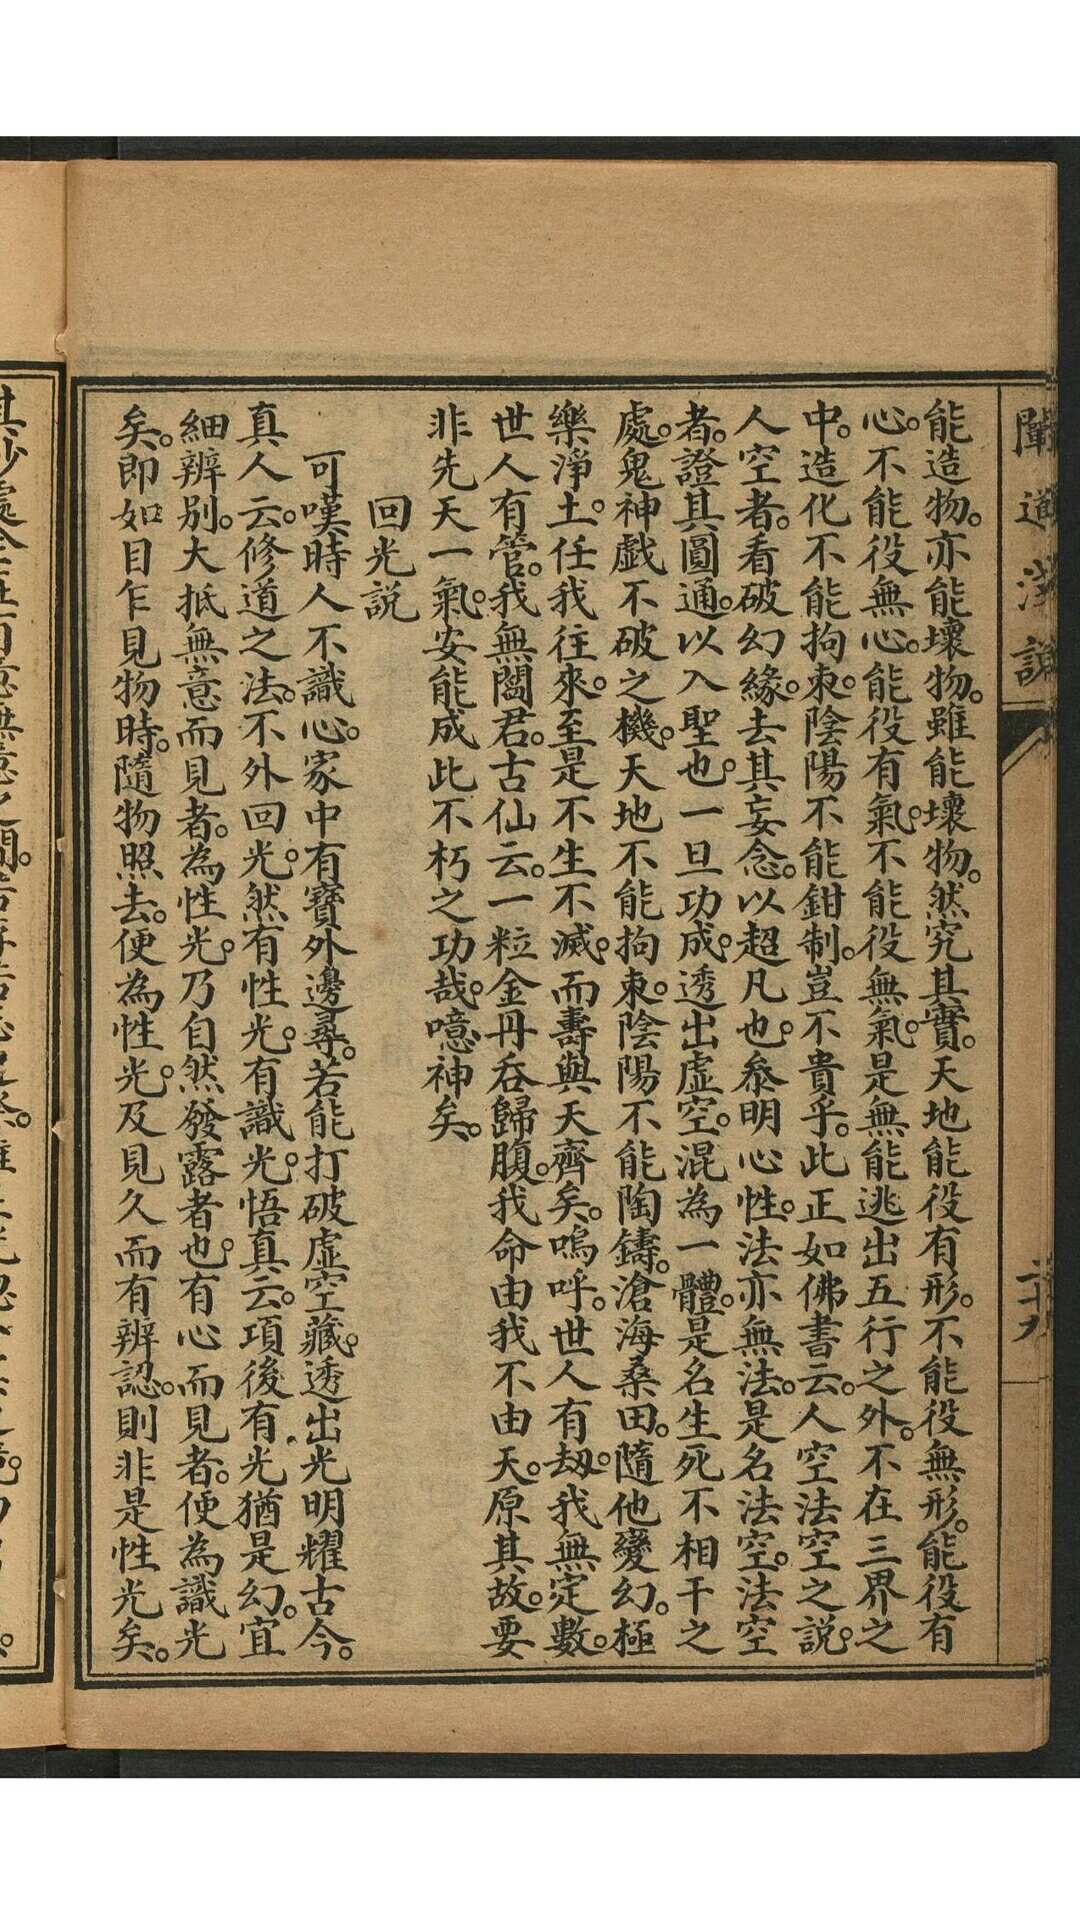 闡道淺說
二十九
能造物。亦能壞物。雖能壞物。然究其實。天地能役有形。不能役無形。能役有
心。不能役無心。能役有氣。不能役無氣。是無能逃出五行之外。不在三界之
中。造化不能拘束。陰陽不能鉗制。豈不貴乎。此正如佛書云。人空法空之說。
人空者。看破幻緣。去其妄念。以超凡也。叅明心性。法亦無法。是名法空。法空
者。證其圓通。以入聖也。一旦功成。透出虛空。混為一體。是名生死不相干之
處。鬼神戲不破之機。天地不能拘束。陰陽不能陶鑄。滄海桑田。隨他變幻。極
樂淨土。任我往來。至是不生不滅。而壽與天齊矣。嗚呼。世人有劫。我無定數。
世人有管。我無閻君。古仙云。一粒金丹吞歸腹。我命由我不由天。原其故。要
非先天一氣。安能成此不朽之功哉。噫神矣。
回光說
可嘆時人不識心。家中有寶外邊尋。若能打破虛空藏。透出光明耀古今。
真人云。修道之法。不外回光。然有性光。有識光。悟真云。項後有光猶是幻。宜
細辨別。大抵無意而見者。為性光。乃自然發露者也。有心而見者。便為識光
矣。即如目乍見物時。隨物照去。便為性光。及見久而有辨認。則非是性光矣。